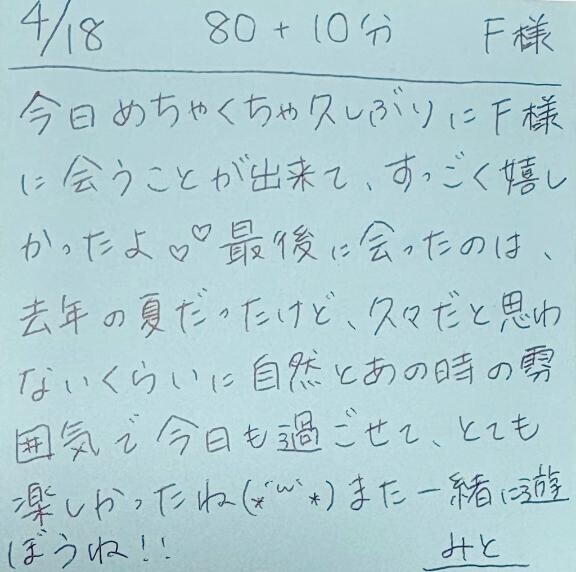 4/18 80+10分 F様
今日めちゃくちゃ久しぶりにF様
に会うことが出来て、すっごく嬉し
かったよ♡♡最後に会ったのは、
去年の夏だったけど、久々だと思わ
ないくらいに自然とあの時の雰
囲気で今日も過ごせて、とても
楽しかったね(*´ω`*)また一緒に遊
ぼうね!!
みと